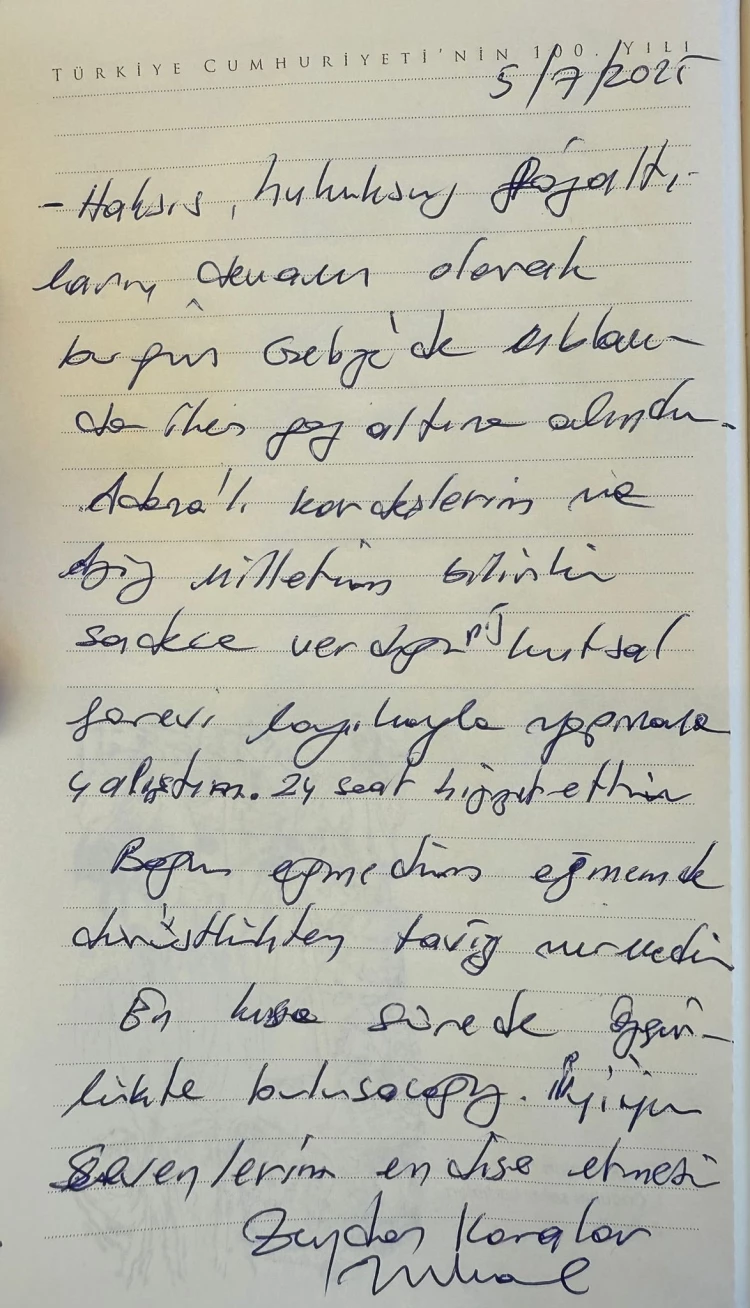 TÜRKİYE CUMHURİYETİ'NİN 100. YILI
5/7/2025
- Haksız, hukuksuz gözaltı-
ların devamı olarak
bugün Gebze'de ablam-
da iken göz altına alındım.
Adana'lı kardeşlerim ve
aziz milletim bilsin ki
sadece verdiğiniz kutsal
görevi layıkıyla yapmaya
çalıştım. 24 saat hizmet ettim
Boğun eğmedim eğmemde
dürüstlükten taviz vermedim
En kısa sürede özgür-
lükte buluşacağız. İyiyim
Sevenlerim endişe etmesin
Zeydan Karalar